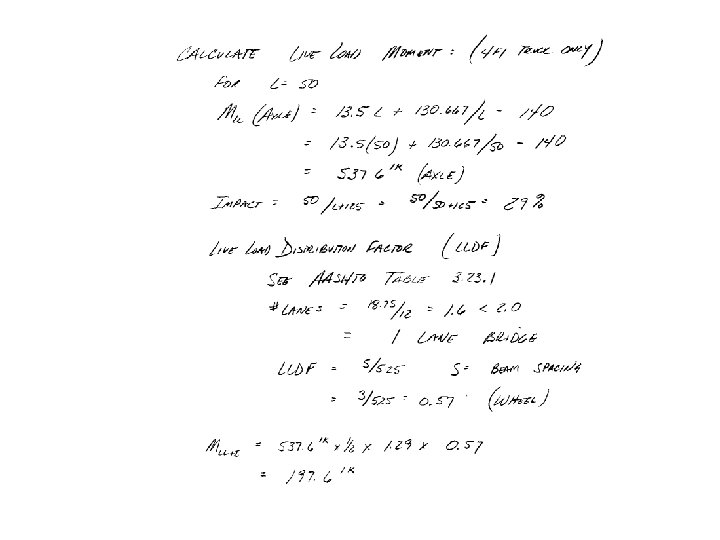 CALCULATE LIVE LOAD MOMENT: (4F1 TRUCK ONLY)
FOR L= 50
MLL (AXLE) = 13.5 L + 130.667/L - 140
= 13.5(50) + 130.667/50 - 140
= 537.6 'K (AXLE)
IMPACT = 50/L+125 = 50/50+125 = 29%
LIVE LOAD DISTRIBUTION FACTOR (LLDF)
SEE AASHTO TABLE 3.23.1
# LANES = 18.75/12 = 1.6 < 2.0
= 1 LANE BRIDGE
LLDF = S/5.25 S= BEAM SPACING
= 3/5.25 = 0.57 (WHEEL)
MLL+I = 537.6 'K x 1/2 x 1.29 x 0.57
= 197.6 'K